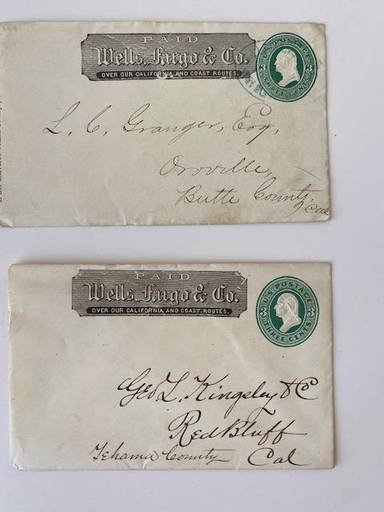 PAID
Wells, Fargo & Co.
OVER OUR CALIFORNIA AND COAST ROUTES.
THREE CENTS
3 3
L. C. Granger, Esq,
Oroville,
Butte County,
Cal
PAID
Wells, Fargo & Co.
OVER OUR CALIFORNIA AND COAST ROUTES.
U.S. POSTAGE
3 3
THREE CENTS
Geo L. Kingsley & C
Red Bluff
Tehama County Cal